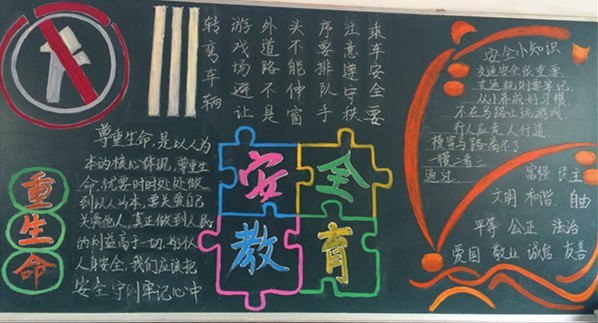 乘车安全要
注意遵守秩
序要排队手
头不能伸窗
外道路不是
游戏场避让
转弯车辆
尊重生命,是以人为
本的核心体现,尊重生
命,就要时时处处做
到以人为本,要关爱自己
关爱他人,真正做到人民
的利益高于一切,
人身安全,我们应该把
安全守则牢记心中
重生命
安全
教育
安全小知识
交通安全很重要,
交通规则要牢记,
从小养成好习惯
不在马路上玩游戏.
行人应走人行道
横穿马路离不了
一慢二看三
通过
富强 民主
文明 和谐 自由
平等 公正 法治
爱国 敬业 诚信 友善